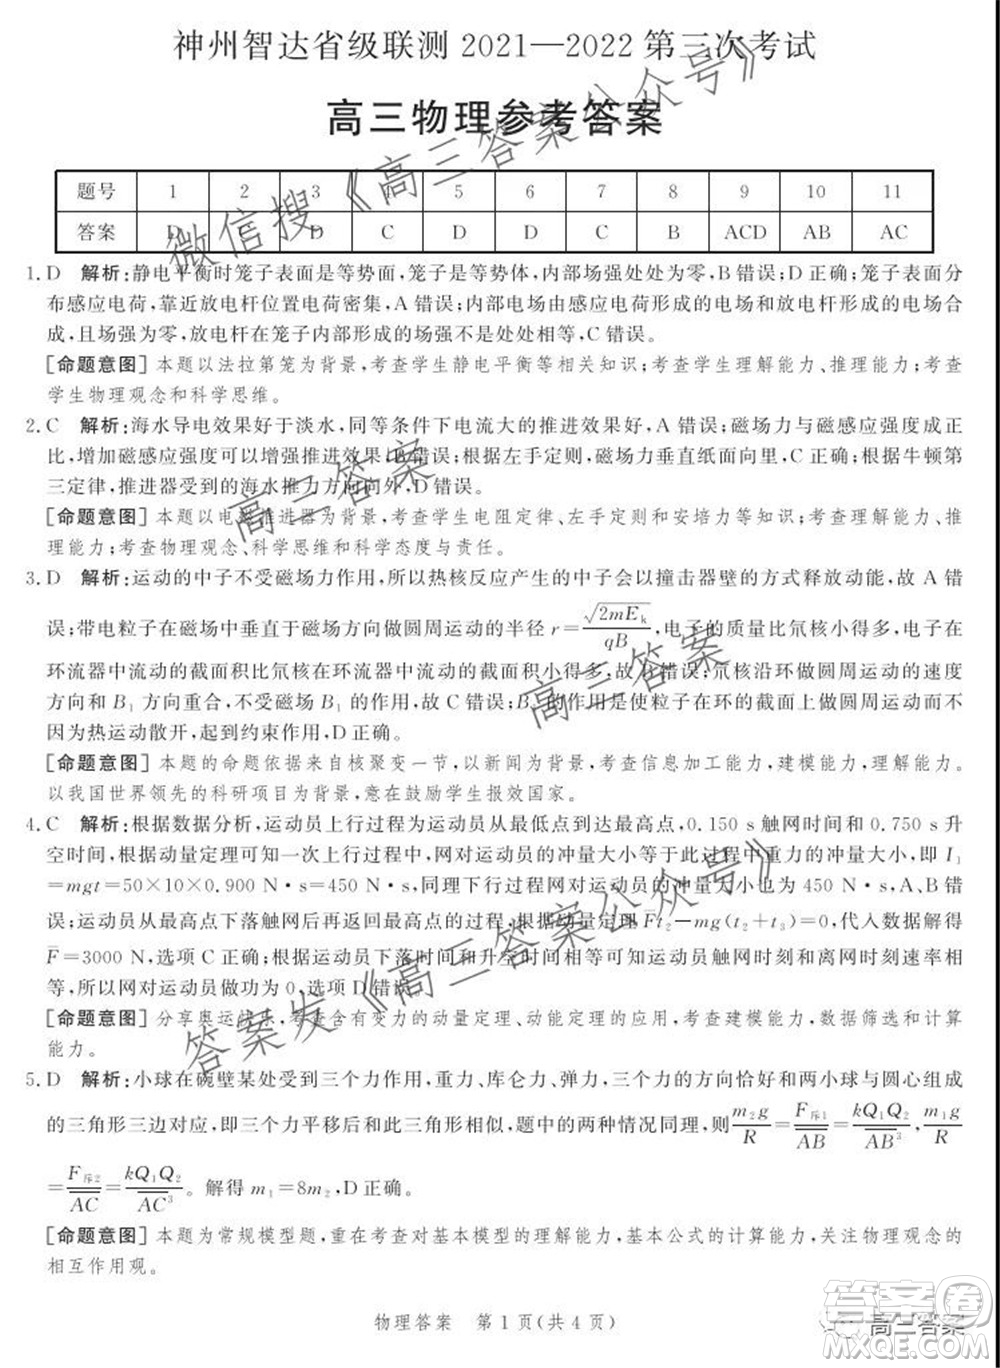 神州智达省级联测 2021—2022 第三次考试
高三物理参考答案
题号 1 2 3 4 5 6 7 8 9 10 11
答案 D C D C D D C B ACD AB AC
1. D 解析:静电平衡时笼子表面是等势面,笼子是等势体,内部场强处处为零,B 错误;D 正确;笼子表面分
布感应电荷,靠近放电杆位置电荷密集,A 错误;内部电场由感应电荷形成的电场和放电杆形成的电场合
成,且场强为零,放电杆在笼子内部形成的场强不是处处相等,C 错误。
[命题意图] 本题以法拉第笼为背景,考查学生静电平衡等相关知识;考查学生理解能力、推理能力;考查
学生物理观念和科学思维。
2. C 解析:海水导电效果好于淡水,同等条件下电流大的推进效果好,A 错误;磁场力与磁感应强度成正
比,增加磁感应强度可以增强推进效果,B 错误;根据左手定则,磁场力垂直纸面向里,C 正确;根据牛顿第
三定律,推进器受到的海水推力方向向外,D 错误。
[命题意图] 本题以电磁推进器为背景,考查学生电阻定律、左手定则和安培力等知识;考查理解能力、推
理能力;考查物理观念、科学思维和科学态度与责任。
3. D 解析:运动的中子不受磁场力作用,所以热核反应产生的中子会以撞击器壁的方式释放动能,故 A 错
误;带电粒子在磁场中垂直于磁场方向做圆周运动的半径 r=√(2mE_k)/(qB),电子的质量比氘核小得多,电子在
环流器中流动的截面积比氘核在环流器中流动的截面积小得多,故 B 错误;氘核沿环做圆周运动的速度
方向和 B₁ 方向重合,不受磁场 B₁ 的作用,C 错误;B₁ 的作用是使粒子在环的截面上做圆周运动,不会
因为热运动散开,起到约束作用,D 正确。
[命题意图] 本题的命题依据来自核聚变一节,以新闻为背景,考查信息加工能力,建模能力,理解能力。
以我国世界领先的科研项目为背景,意在鼓励学生报效国家。
4. C 解析:根据数据分析,运动员上行过程为运动员从最低点到达最高点,0.150 s 触网时间和 0.750 s 升
空时间,根据动量定理可知一次上行过程中,网对运动员的冲量大小等于此过程中重力的冲量大小,即 I₁
=mgt=50×10×0.900 N·s=450 N·s,同理下行过程网对运动员的冲量大小也为 450 N·s,A、B 错
误;运动员从最高点下落触网后再返回最高点的过程,根据动量定理 F̄t₂−mg(t₂+t₃)=0,代入数据解得
F̄=3000 N,选项 C 正确;因运动员下落时间和升空时间相等,所以运动员触网时刻和离网时刻速率相
等,所以网对运动员做功为 0,选项 D 错误。
[命题意图] 分享奥运快乐,考查有关变力的动量定理、动能定理的应用,考查建模能力,数据筛选和计算
能力。
5. D 解析:小球在碗壁某处受到三个力作用,重力、库仑力、弹力,三个力的方向恰好和两小球与圆心组成
的三角形三边对应,即三个力平移后和此三角形相似,题中的两种情况同理,则 m₂g/R=F斥₁/AB=kQ₁Q₂/AB³,m₁g/R
=F斥₂/AC=kQ₁Q₂/AC³。解得 m₁=8m₂,D 正确。
[命题意图] 本题为常规模型题,重在考查对基本模型的理解能力,基本公式的计算能力,关注物理观念的
相互作用观。
物理答案 第 1 页(共 4 页)
微信搜《高三答案公众号》
高三答案
高三答案
答案发《高三答案公众号》
高三答案
答案圈
MXQE.COM